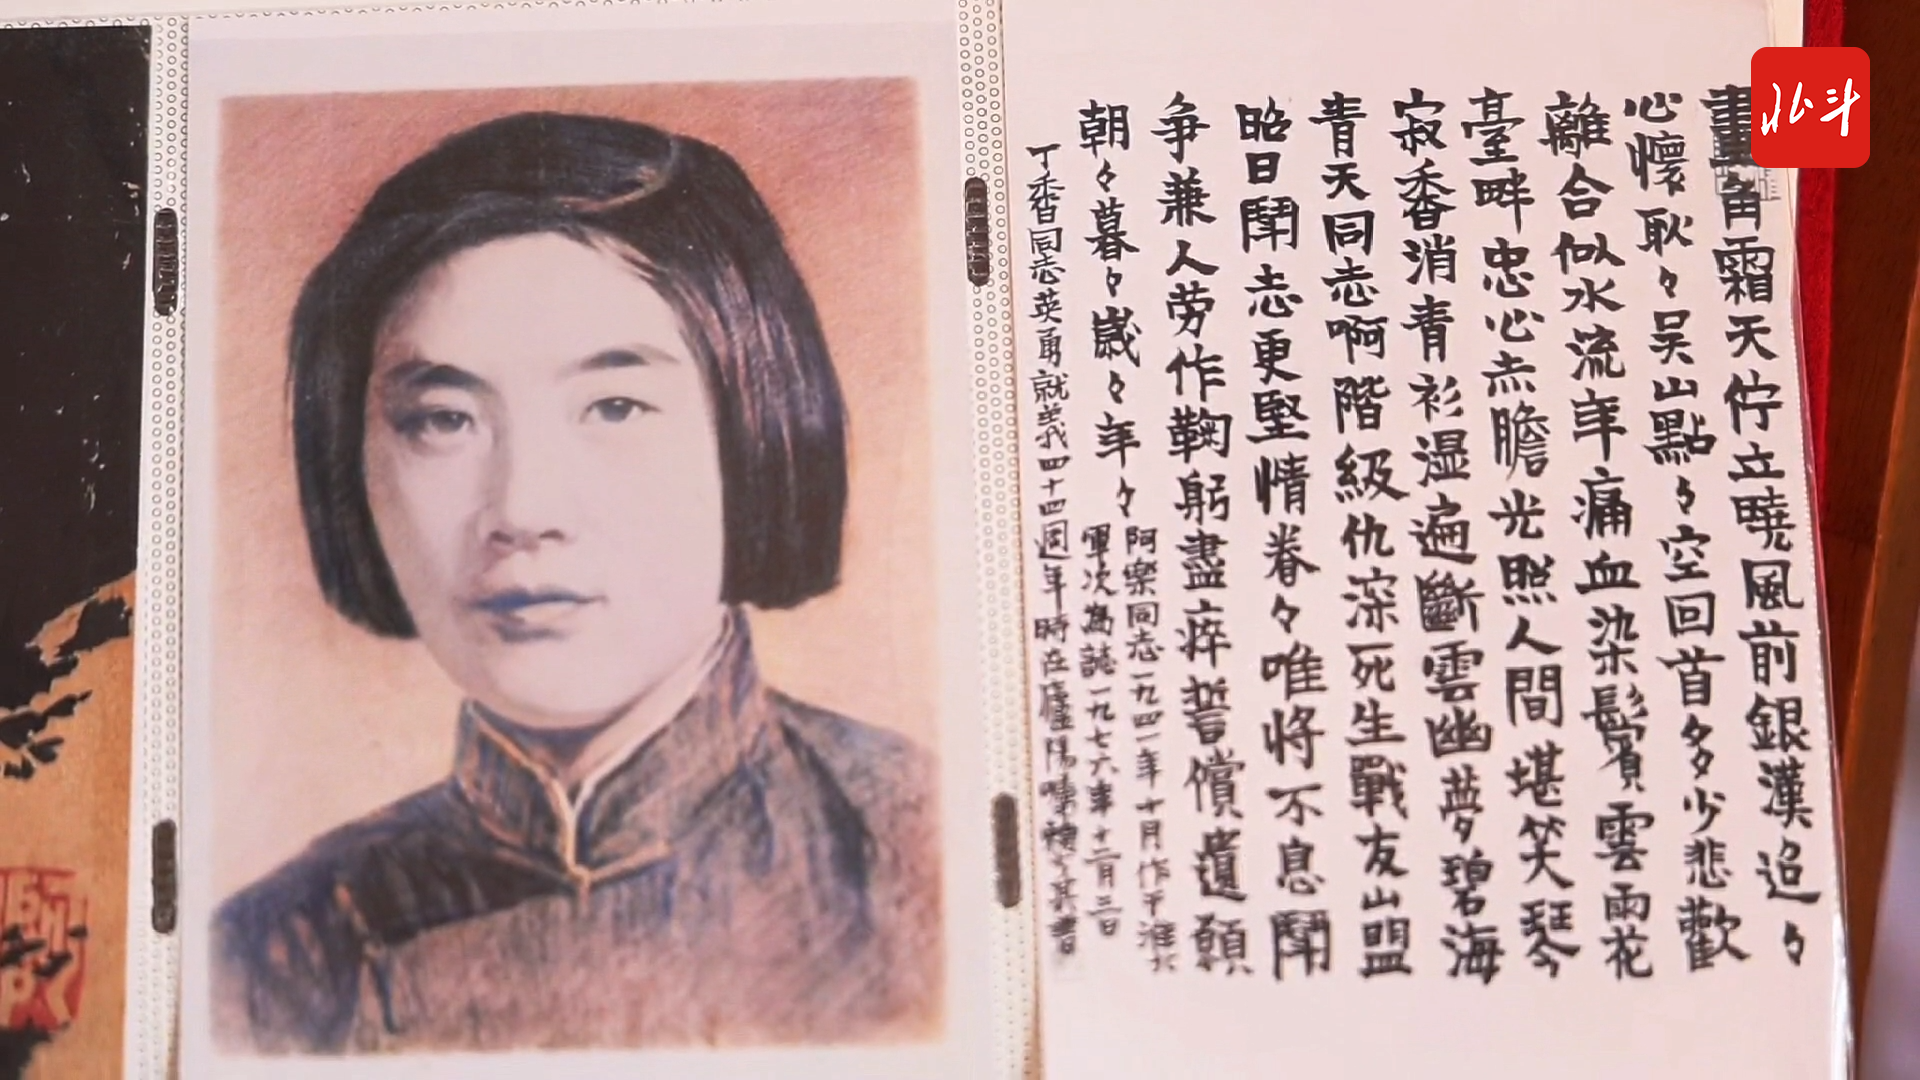 畫角霜天佇立曉風前銀漢迢々
心懷耿々吴山點々空回首多少悲歡
離合似水流年痛血染鬢雲雨花
臺畔忠心赤膽光照人間堪笑琴
寂香消青衫濕遍斷雲幽夢碧海
青天同志啊階級仇深死生戰友山盟
昭日鬪志更堅情眷々唯将不息鬪
争兼人劳作鞠躬盡瘁誓償遺願
朝々暮々歲々年々
阿樂同志一九四一年十月作于淮北
軍次為誌一九七六年十二月三日
丁香同志英勇就義四十四週年時在廬陽
北斗